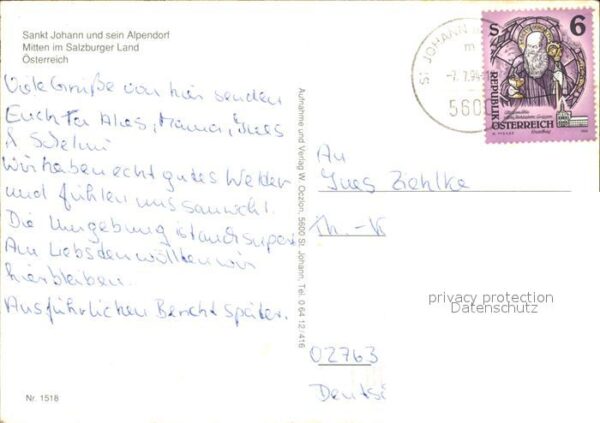 Sankt Johann und sein Alpendorf
Mitten im Salzburger Land
Österreich
Viele Grüße von hier senden
Euch
Wir haben echt gutes Wetter
und fühlen uns sauwohl.
Die Umgebung ist auch super.
Am Liebsten wollten wir
hierbleiben.
Ausführlichen Bericht später.
Nr. 1518
Aufnahme und Verlag W. Oczlon, 5600 St. Johann, Tel. 0 64 12 / 416
ST. JOHANN
-7.7.94-
5600
S 6
REPUBLIK
ÖSTERREICH
An
Yves Ziehlke
Th.-
02763
privacy protection
Datenschutz